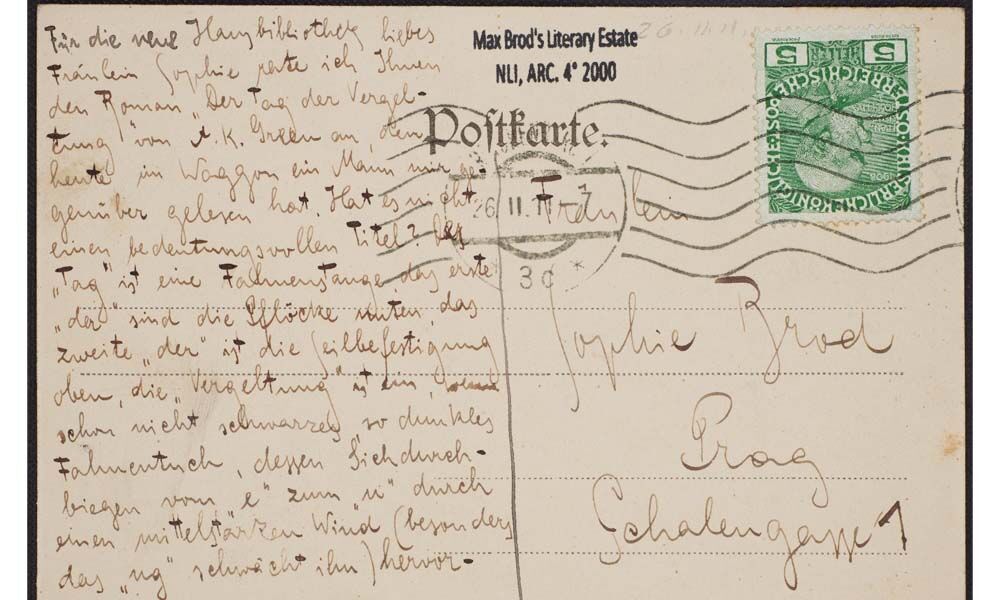 Für die neue Hausbibliothek liebes
Fräulein Sophie rate ich Ihnen
den Roman „Der Tag der Vergel-
tung" von A. K. Green an, den
heute im Waggon ein Mann mir ge-
genüber gelesen hat. Hat es nicht
einen bedeutungsvollen Titel? Der
„Tag" ist eine Fahnenstange das erste
„der" sind die Pflöcke unten, das
zweite „der" ist die Seilbefestigung
oben, die „Vergeltung" ist ein, wenn
schon nicht schwarzes, so dunkles
Fahnentuch, dessen Sichdurch-
biegen vom „e" zum „u" durch
einen mittelstarken Wind (besonders
das „ng" schwächt ihn) hervor-
Max Brod's Literary Estate
NLI, ARC. 4° 2000
Postkarte.
26 II. 11 - 7
3c *
5 HELLER 5
1908
Fräulein
Sophie Brod
Prag
Schalengasse 1